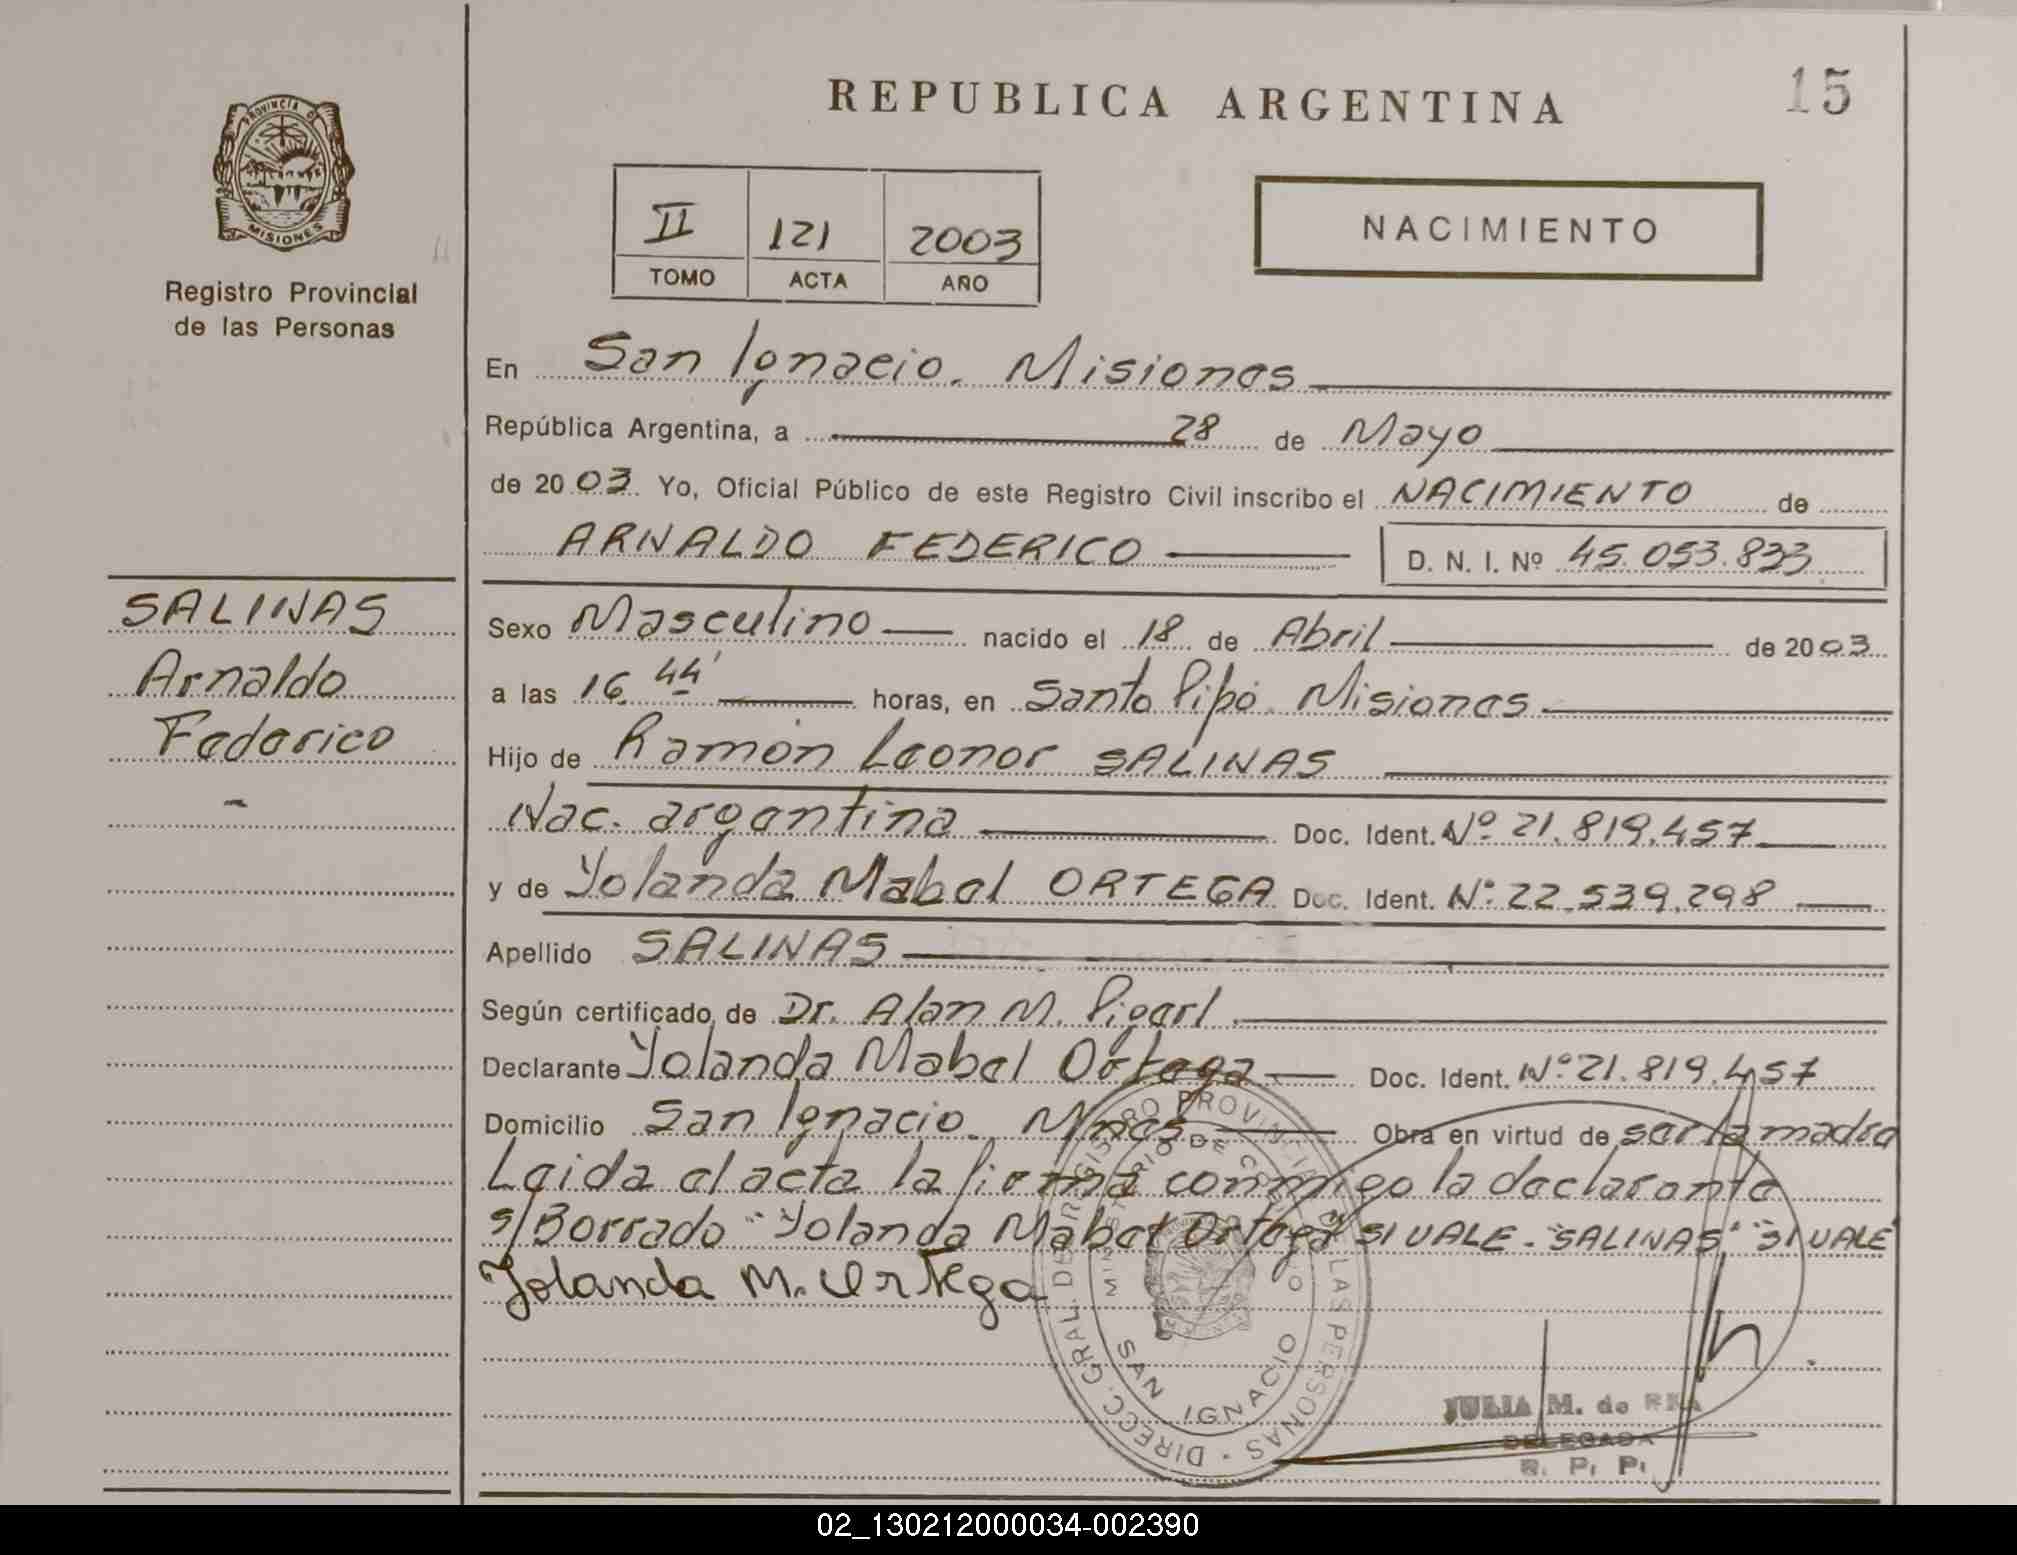 REPUBLICA ARGENTINA
15
PROVINCIA DE
MISIONES
Registro Provincial
de las Personas
II 121 2003
TOMO ACTA AÑO
NACIMIENTO
En San Ignacio. Misiones
República Argentina, a 28 de Mayo
de 2003. Yo, Oficial Público de este Registro Civil inscribo el NACIMIENTO de
ARNALDO FEDERICO D. N. I. Nº 45.053.833
SALINAS
Arnaldo
Federico
Sexo Masculino nacido el 18 de Abril de 2003
a las 16 44' horas, en Santo Pipó. Misiones
Hijo de Ramón Leonor SALINAS
Nac. argentina Doc. Ident. Nº 21.819.457
y de Yolanda Mabel ORTEGA Doc. Ident. Nº 22.539.298
Apellido SALINAS
Según certificado de Dr. Alan M.
Declarante Yolanda Mabel Ortega Doc. Ident. Nº 21.819.457
Domicilio San Ignacio. Mnes Obra en virtud de ser la madre
Leida el acta la firma conmigo la declarante
s/Borrado "Yolanda Mabel Ortega" SI VALE - "SALINAS" "SI VALE
Yolanda M. Ortega
DIRECC. GRAL. DEL REGISTRO PROVINCIAL DE LAS PERSONAS
MINISTERIO DE GOBIERNO
SAN IGNACIO
JULIA M. de
DELEGADA
R. P. P.
02_130212000034-002390